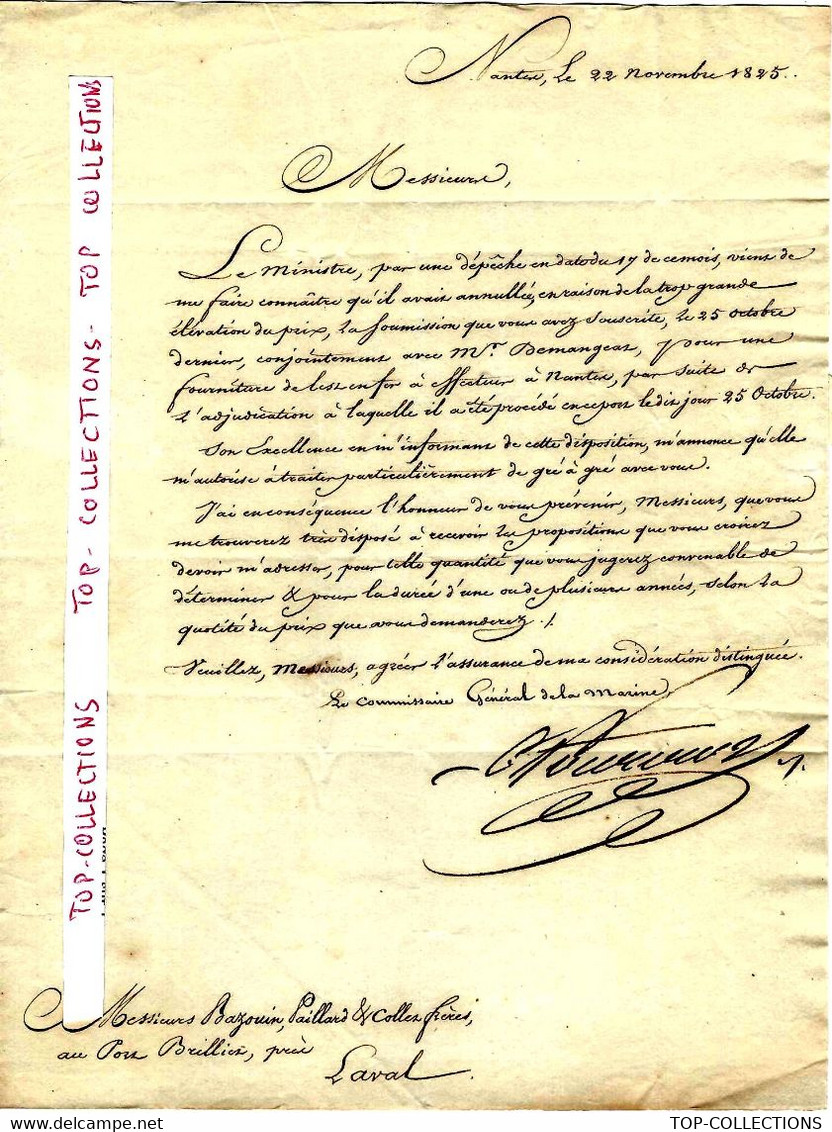 Nantes, Le 22 novembre 1825.
Messieurs,
Le Ministre, par une dépêche en date du 17 de ce mois, vient de
me faire connaître qu'il avait annullée, en raison de la trop grande
élévation du prix, la soumission que vous avez souscrite, le 25 octobre
dernier, conjointement avec Mr. Demangeat, pour une
fourniture de lest en fer à effectuer à Nantes, par suite de
l'adjudication à laquelle il a été procédé en ce port le dit jour 25 Octobre.
Son Excellence en m'informant de cette disposition, m'annonce qu'elle
m'autorise à traiter particulièrement de gré à gré avec vous.
J'ai en conséquence l'honneur de vous prévenir, Messieurs, que vous
me trouverez très disposé à recevoir les propositions que vous croirez
devoir m'adresser, pour telle quantité que vous jugerez convenable de
déterminer & pour la durée d'une ou de plusieurs années, selon la
quotité du prix que vous demanderez ./.
Veuillez, Messieurs, agréer l'assurance de ma considération distinguée.
Le Commissaire Général de la Marine,
Messieurs Bazouin, Paillard & Collet frères,
au Port Brillet, près
Laval.
TOP-COLLECTIONS TOP-COLLECTIONS-TOP COLLECTIONS
TOP-COLLECTIONS